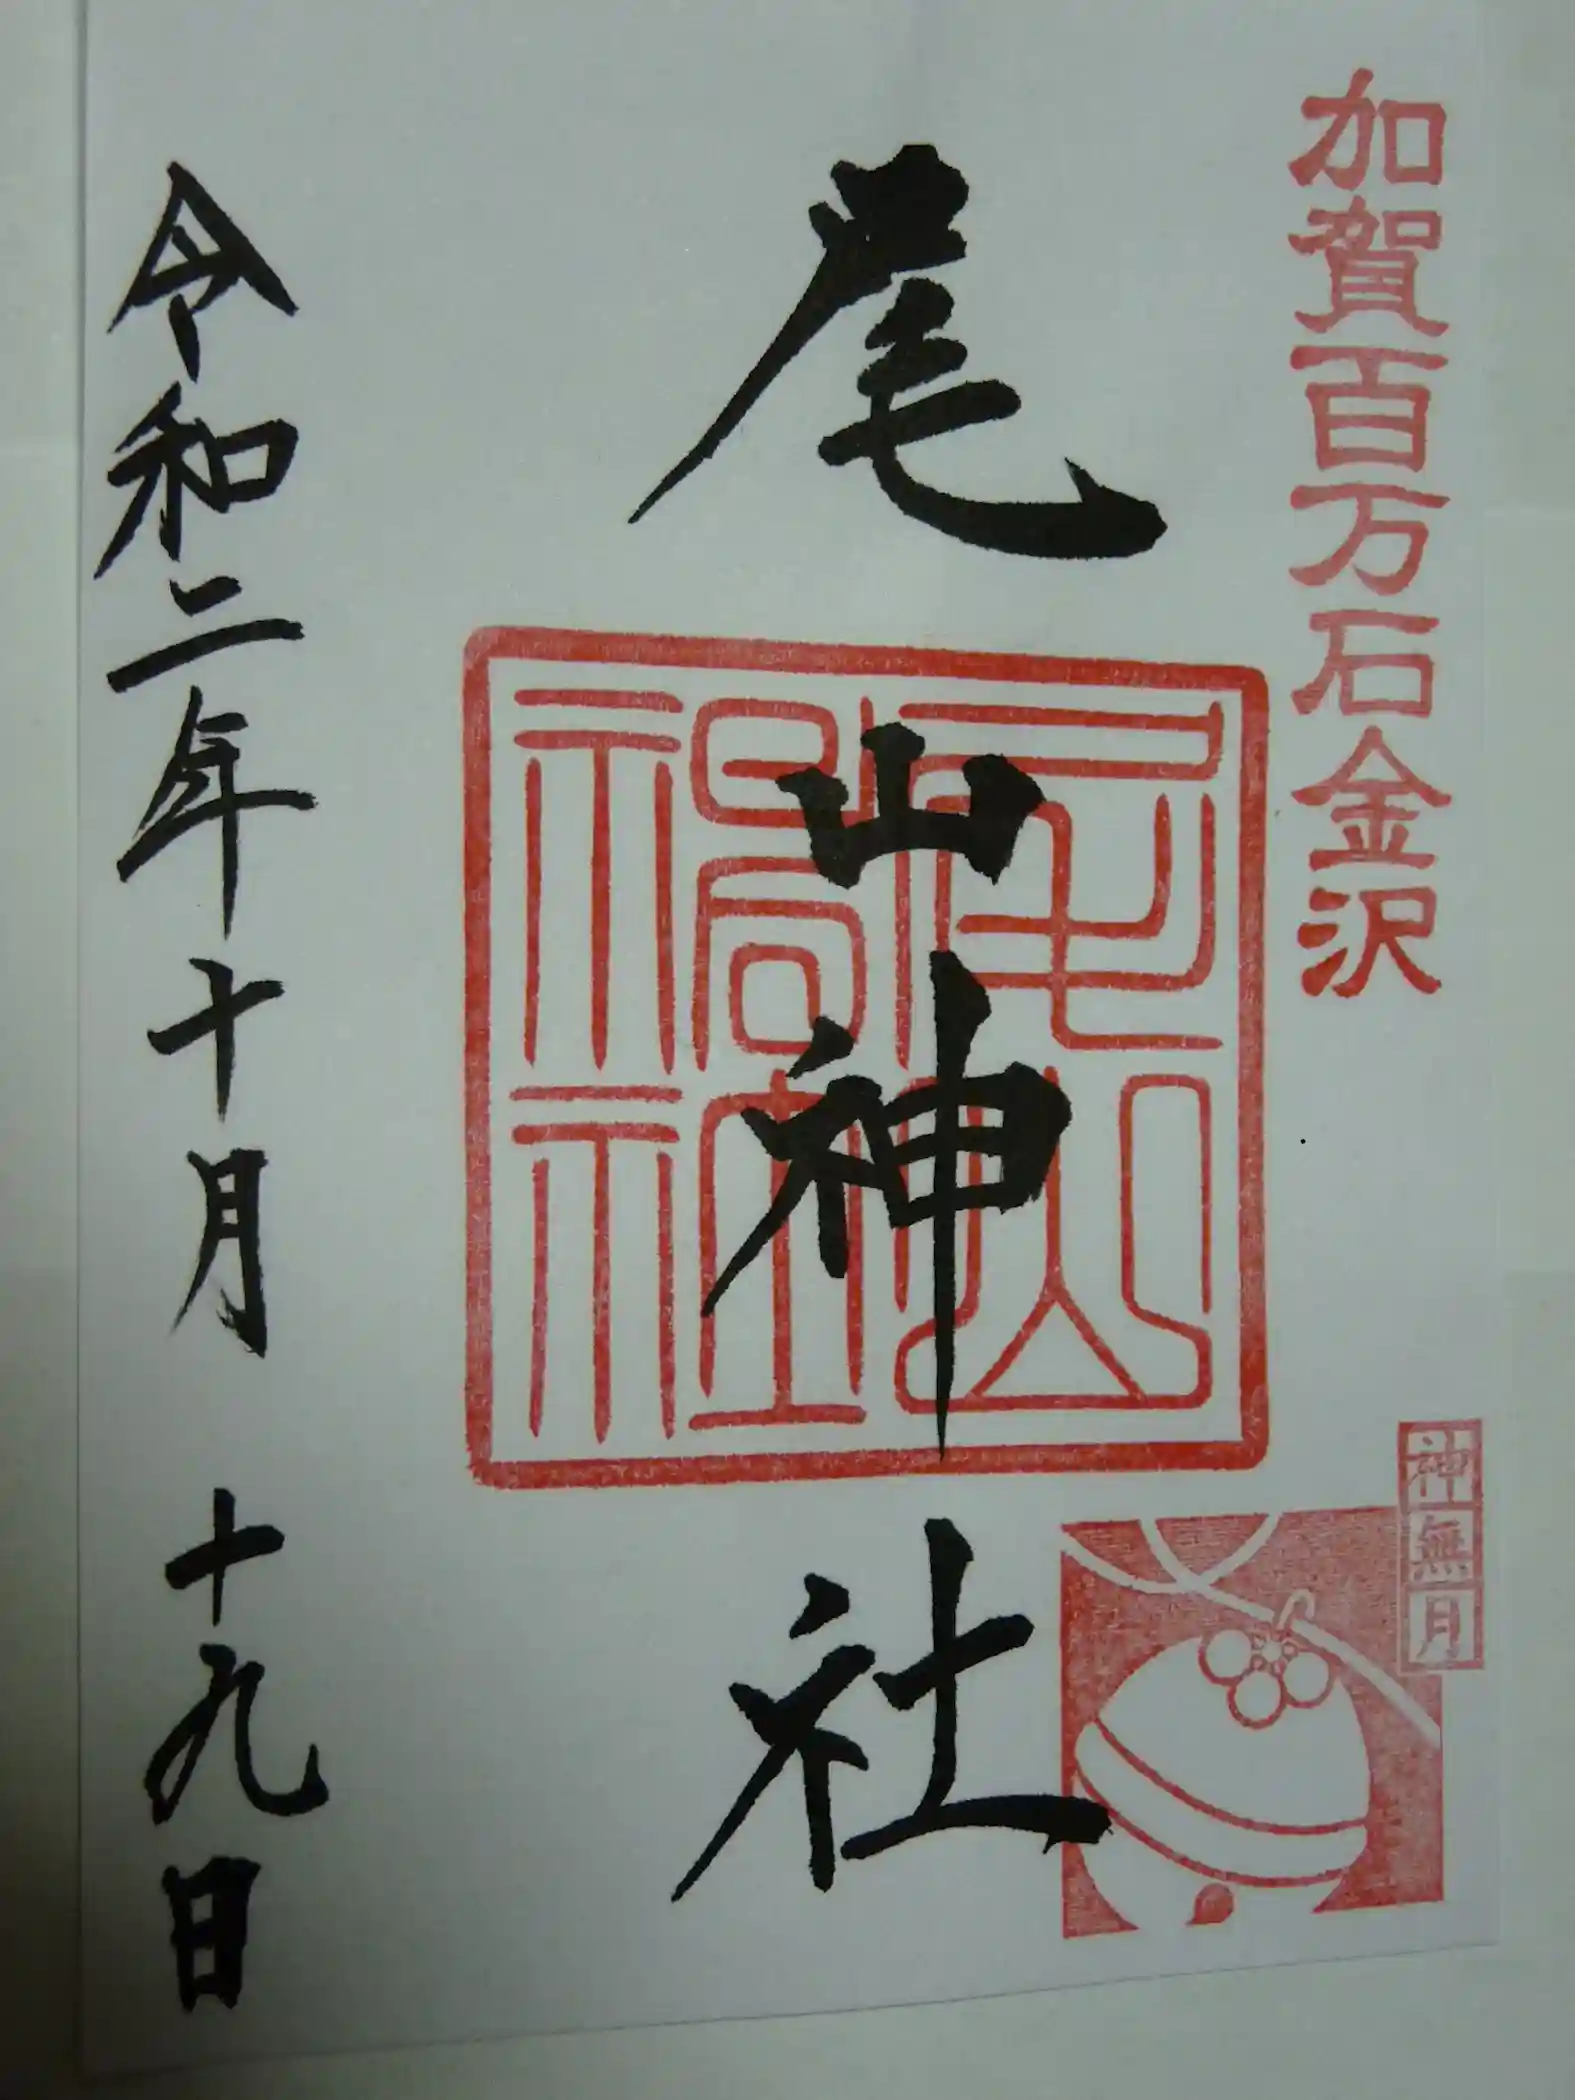 加賀百万石金沢
神無月
尾山神社
尾山神社
令和二年十月 十九日